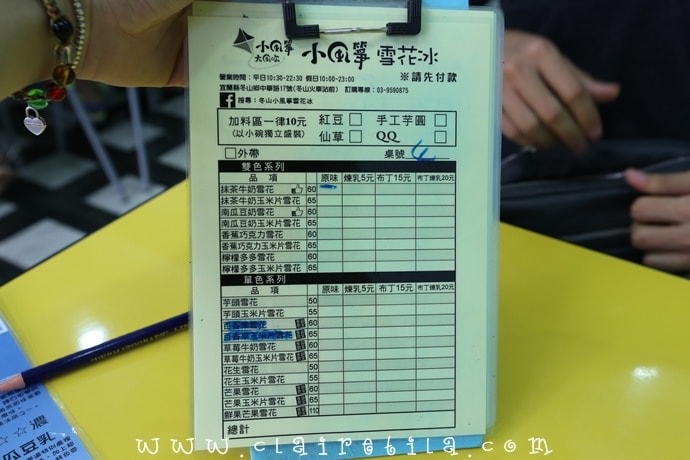 小風箏
大風吹
小風箏 雪花冰
營業時間:平日10:30-22:30 假日10:00-23:00 ※請先付款
宜蘭縣冬山鄉中華路17號(冬山火車站前) 訂購專線:03-9590875
搜尋:冬山小風箏雪花冰
加料區一律10元 紅豆 手工芋圓
(以小碗獨立盛裝) 仙草 QQ
外帶 桌號 4
雙色系列
品 項 原味 煉乳5元 布丁15元 布丁煉乳20元
抹茶牛奶雪花 60
抹茶牛奶玉米片雪花 65
南瓜豆奶雪花 60
南瓜豆奶玉米片雪花 65
香蕉巧克力雪花 60
香蕉巧克力玉米片雪花 65
檸檬多多雪花 60
檸檬多多玉米片雪花 65
單色系列
品 項 原味 煉乳5元 布丁15元 布丁煉乳20元
芋頭雪花 50
芋頭玉米片雪花 55
60
65
草莓牛奶雪花 60
草莓牛奶玉米片雪花 65
花生雪花 50
花生玉米片雪花 55
芒果雪花 60
芒果玉米片雪花 65
鮮果芒果雪花 110
總計
www.clairetila.com